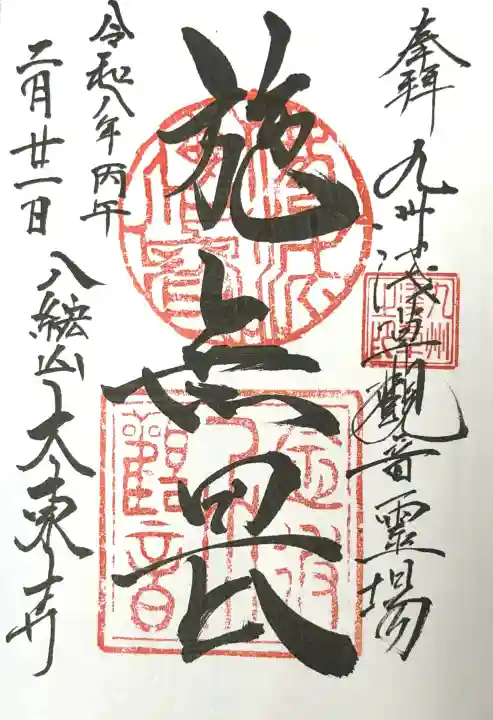 奉拝 九州浅草觀音霊場
施無畏
令和八年丙午
二月廿一日
八紘山 大東寺